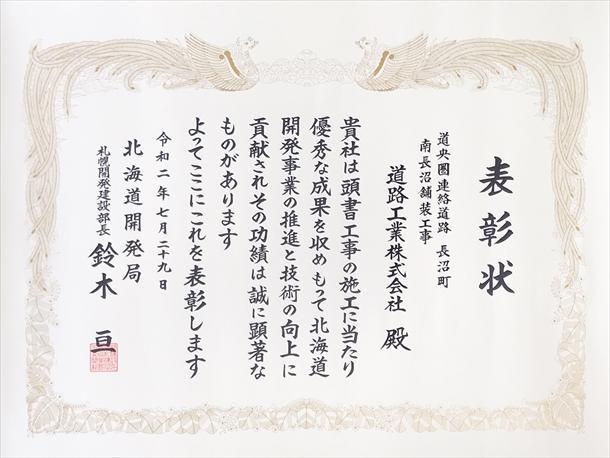 表彰状
道央圏連絡道路 長沼町
南長沼舗装工事
道路工業株式会社 殿
貴社は頭書工事の施工に当たり
優秀な成果を収めもって北海道
開発事業の推進と技術の向上に
貢献されその功績は誠に顕著な
ものがあります
よってここにこれを表彰します
令和二年七月二十九日
北海道開発局
札幌開発建設部長 鈴木 亘